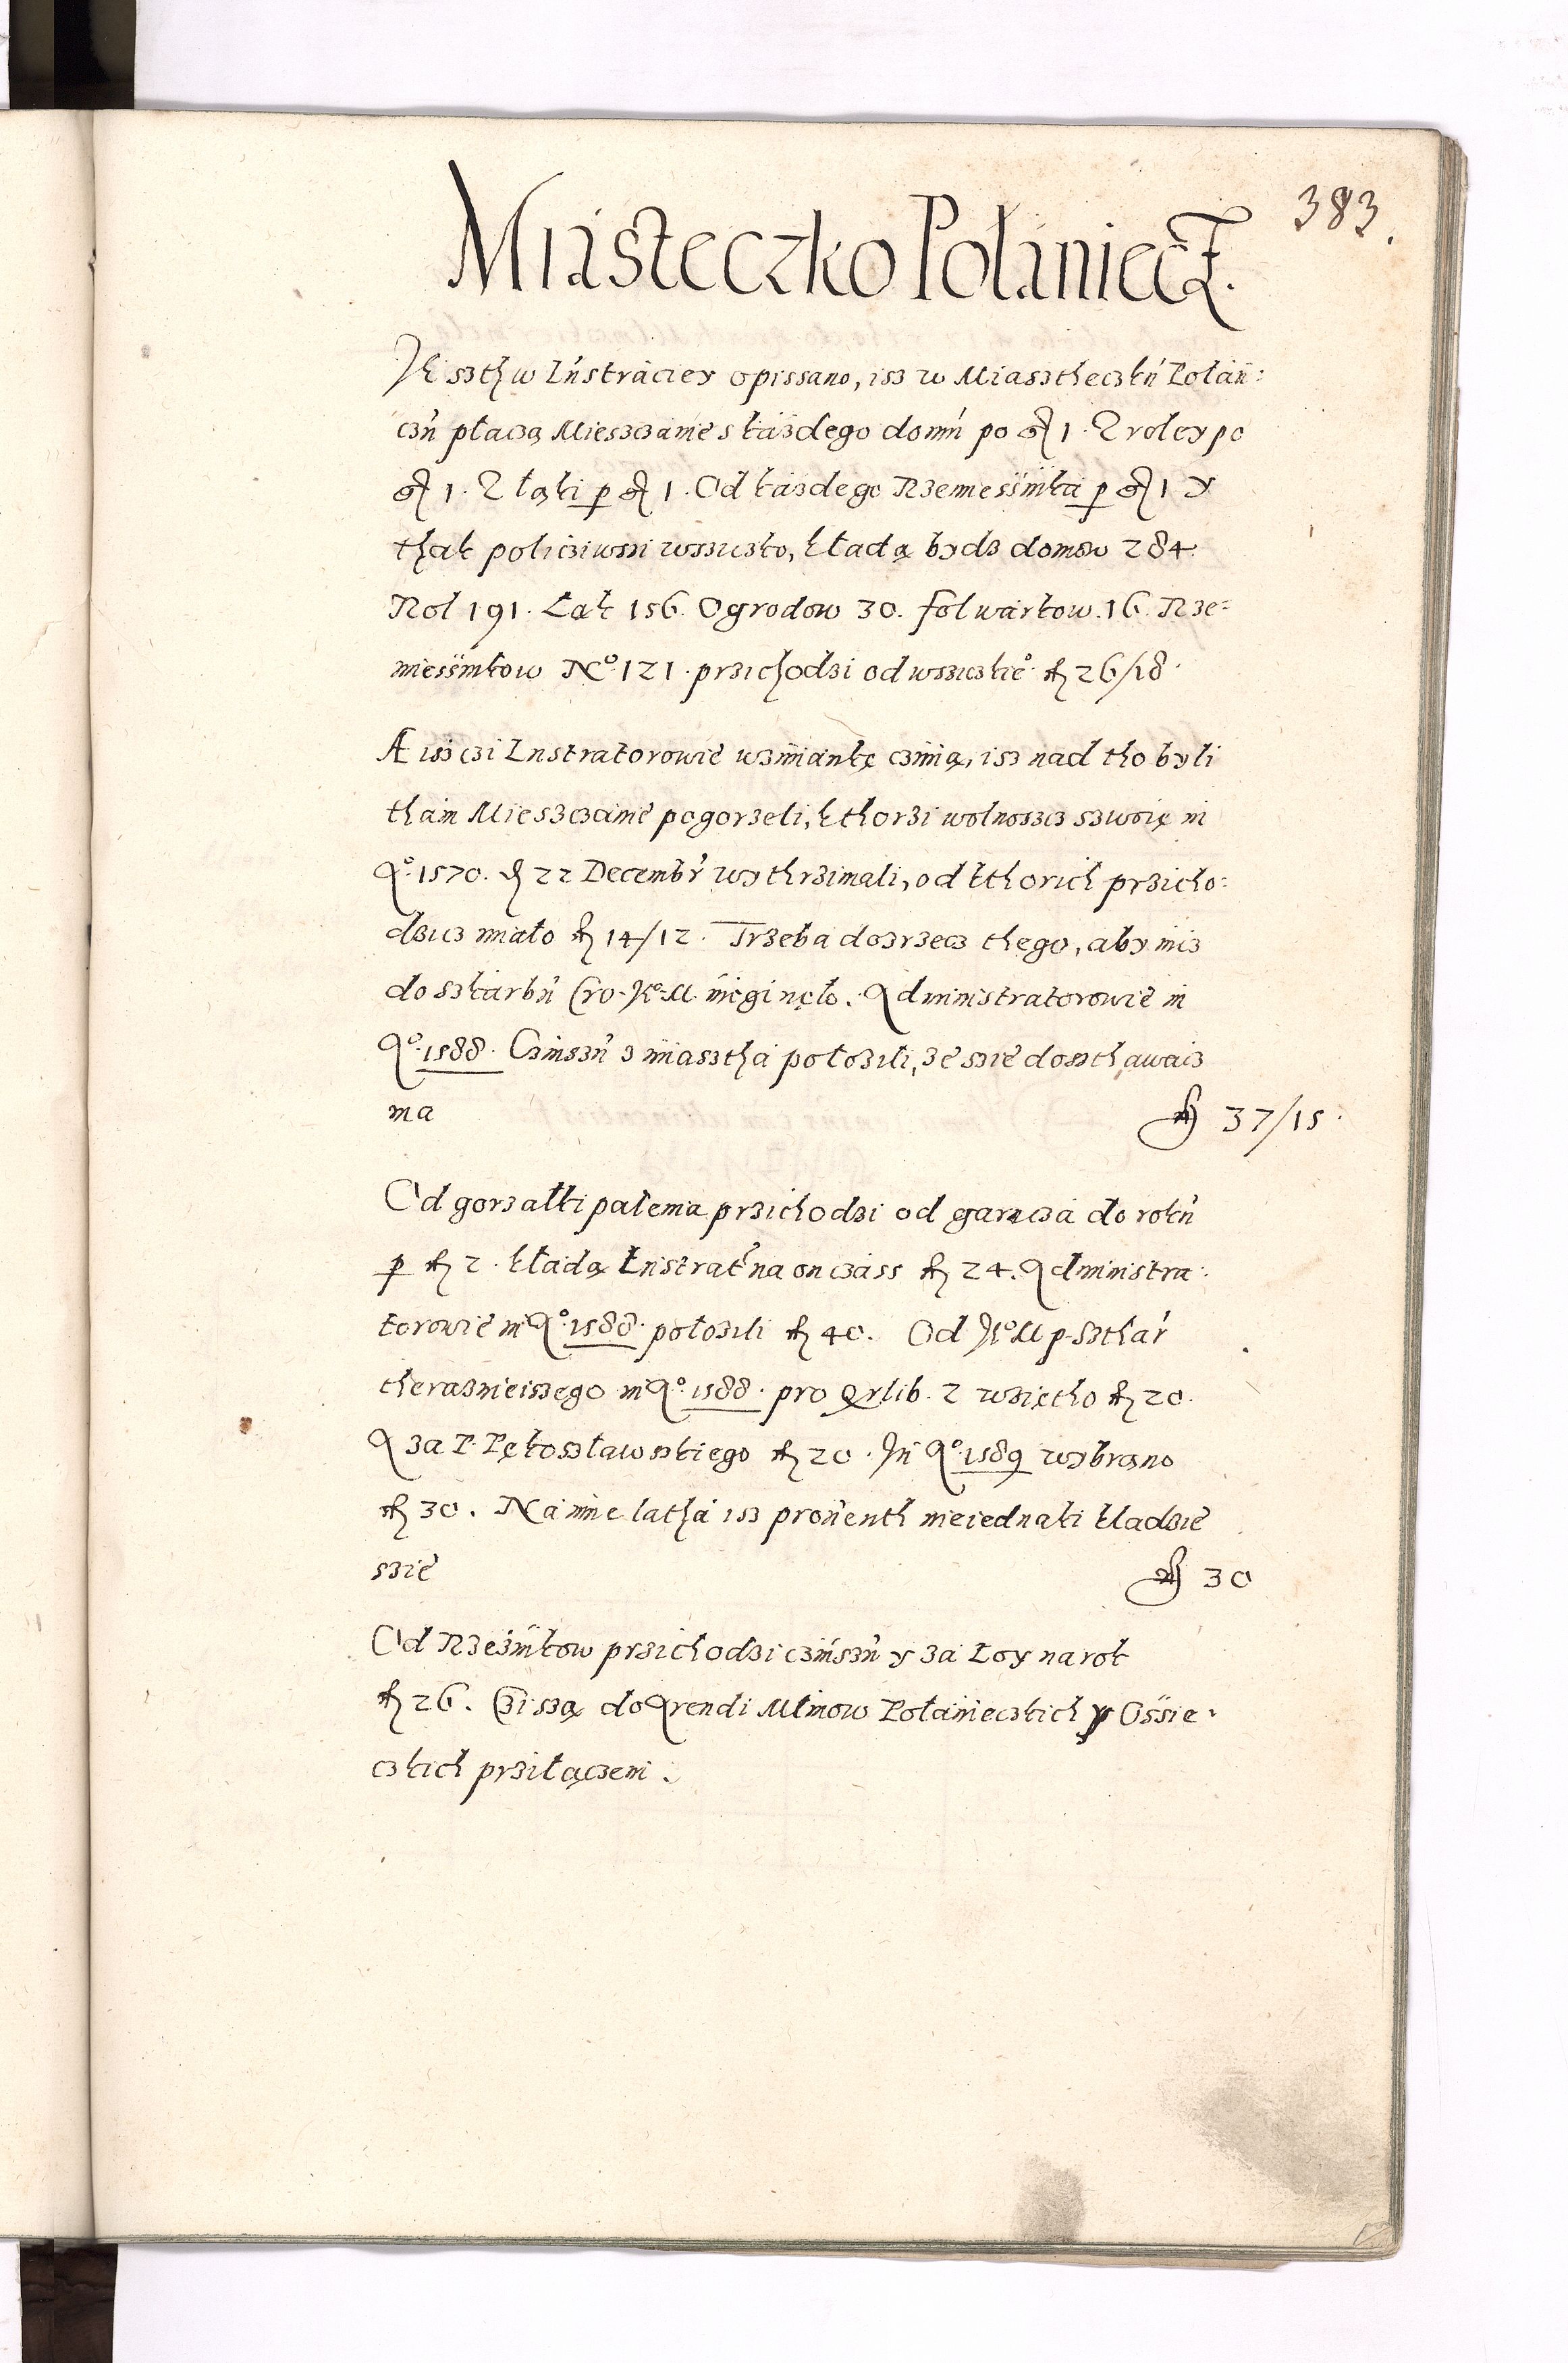 383.
Miasteczko Połaniecz.
Jesth w Lustraciey opissano, isz w Miastheczku Połan:
czu płaczą Miesczanie s każdego domu po gr 1. Z roley po
gr 1. Z łąki p gr 1. Od każdego Rzemiessnika p gr 1 y
thak policziwssi wssitko, kładą bydz domow 284.
Rol 191. Łąk 156. Ogrodow 30. folwarkow 16. Rze-
miessnikow No 121. przichodzi od wssitkieo fl 26/18.
A isz czi Lustratorowie wzmiankę czinią, isz nad tho byli
tham Miesczanie pogorzeli, kthorzi wolnoscz swoię in
Ao. 1570. d 22 Decembr wythrzimali, od kthorich przicho:
dzicz miało fl 14/12. Trzeba dozrzecz thego, aby nicz
do skarbu Cro. Jo. M. nieginęło. Administratorowie in
Ao. 1588. Czinszu z miastha położili, że sie dosthawacz
ma fl 37/15.
Od gorzałki palenia przichodzi od garncza do roku
p fl 2. kładą Lustrat na on czass fl 24. Administra:
torowie in Ao. 1588. położili fl 40. Od Jo M p. Sthar
therasznieissego in Ao. 1588. pro Qrlib. 2 wzięto fl 20.
A za P. Pękosławskiego fl 20. In Ao. 1589 wybrano
fl 30. Na inne latha isz prouenth nieiednaki kładzie
sie fl 30
Od Rzeźnikow przichodzi czinszu y za Łoy na rok
fl 26. Czi są do Arendi Młinow Połanieczkich y Ossie-
czkich prziłączeni.